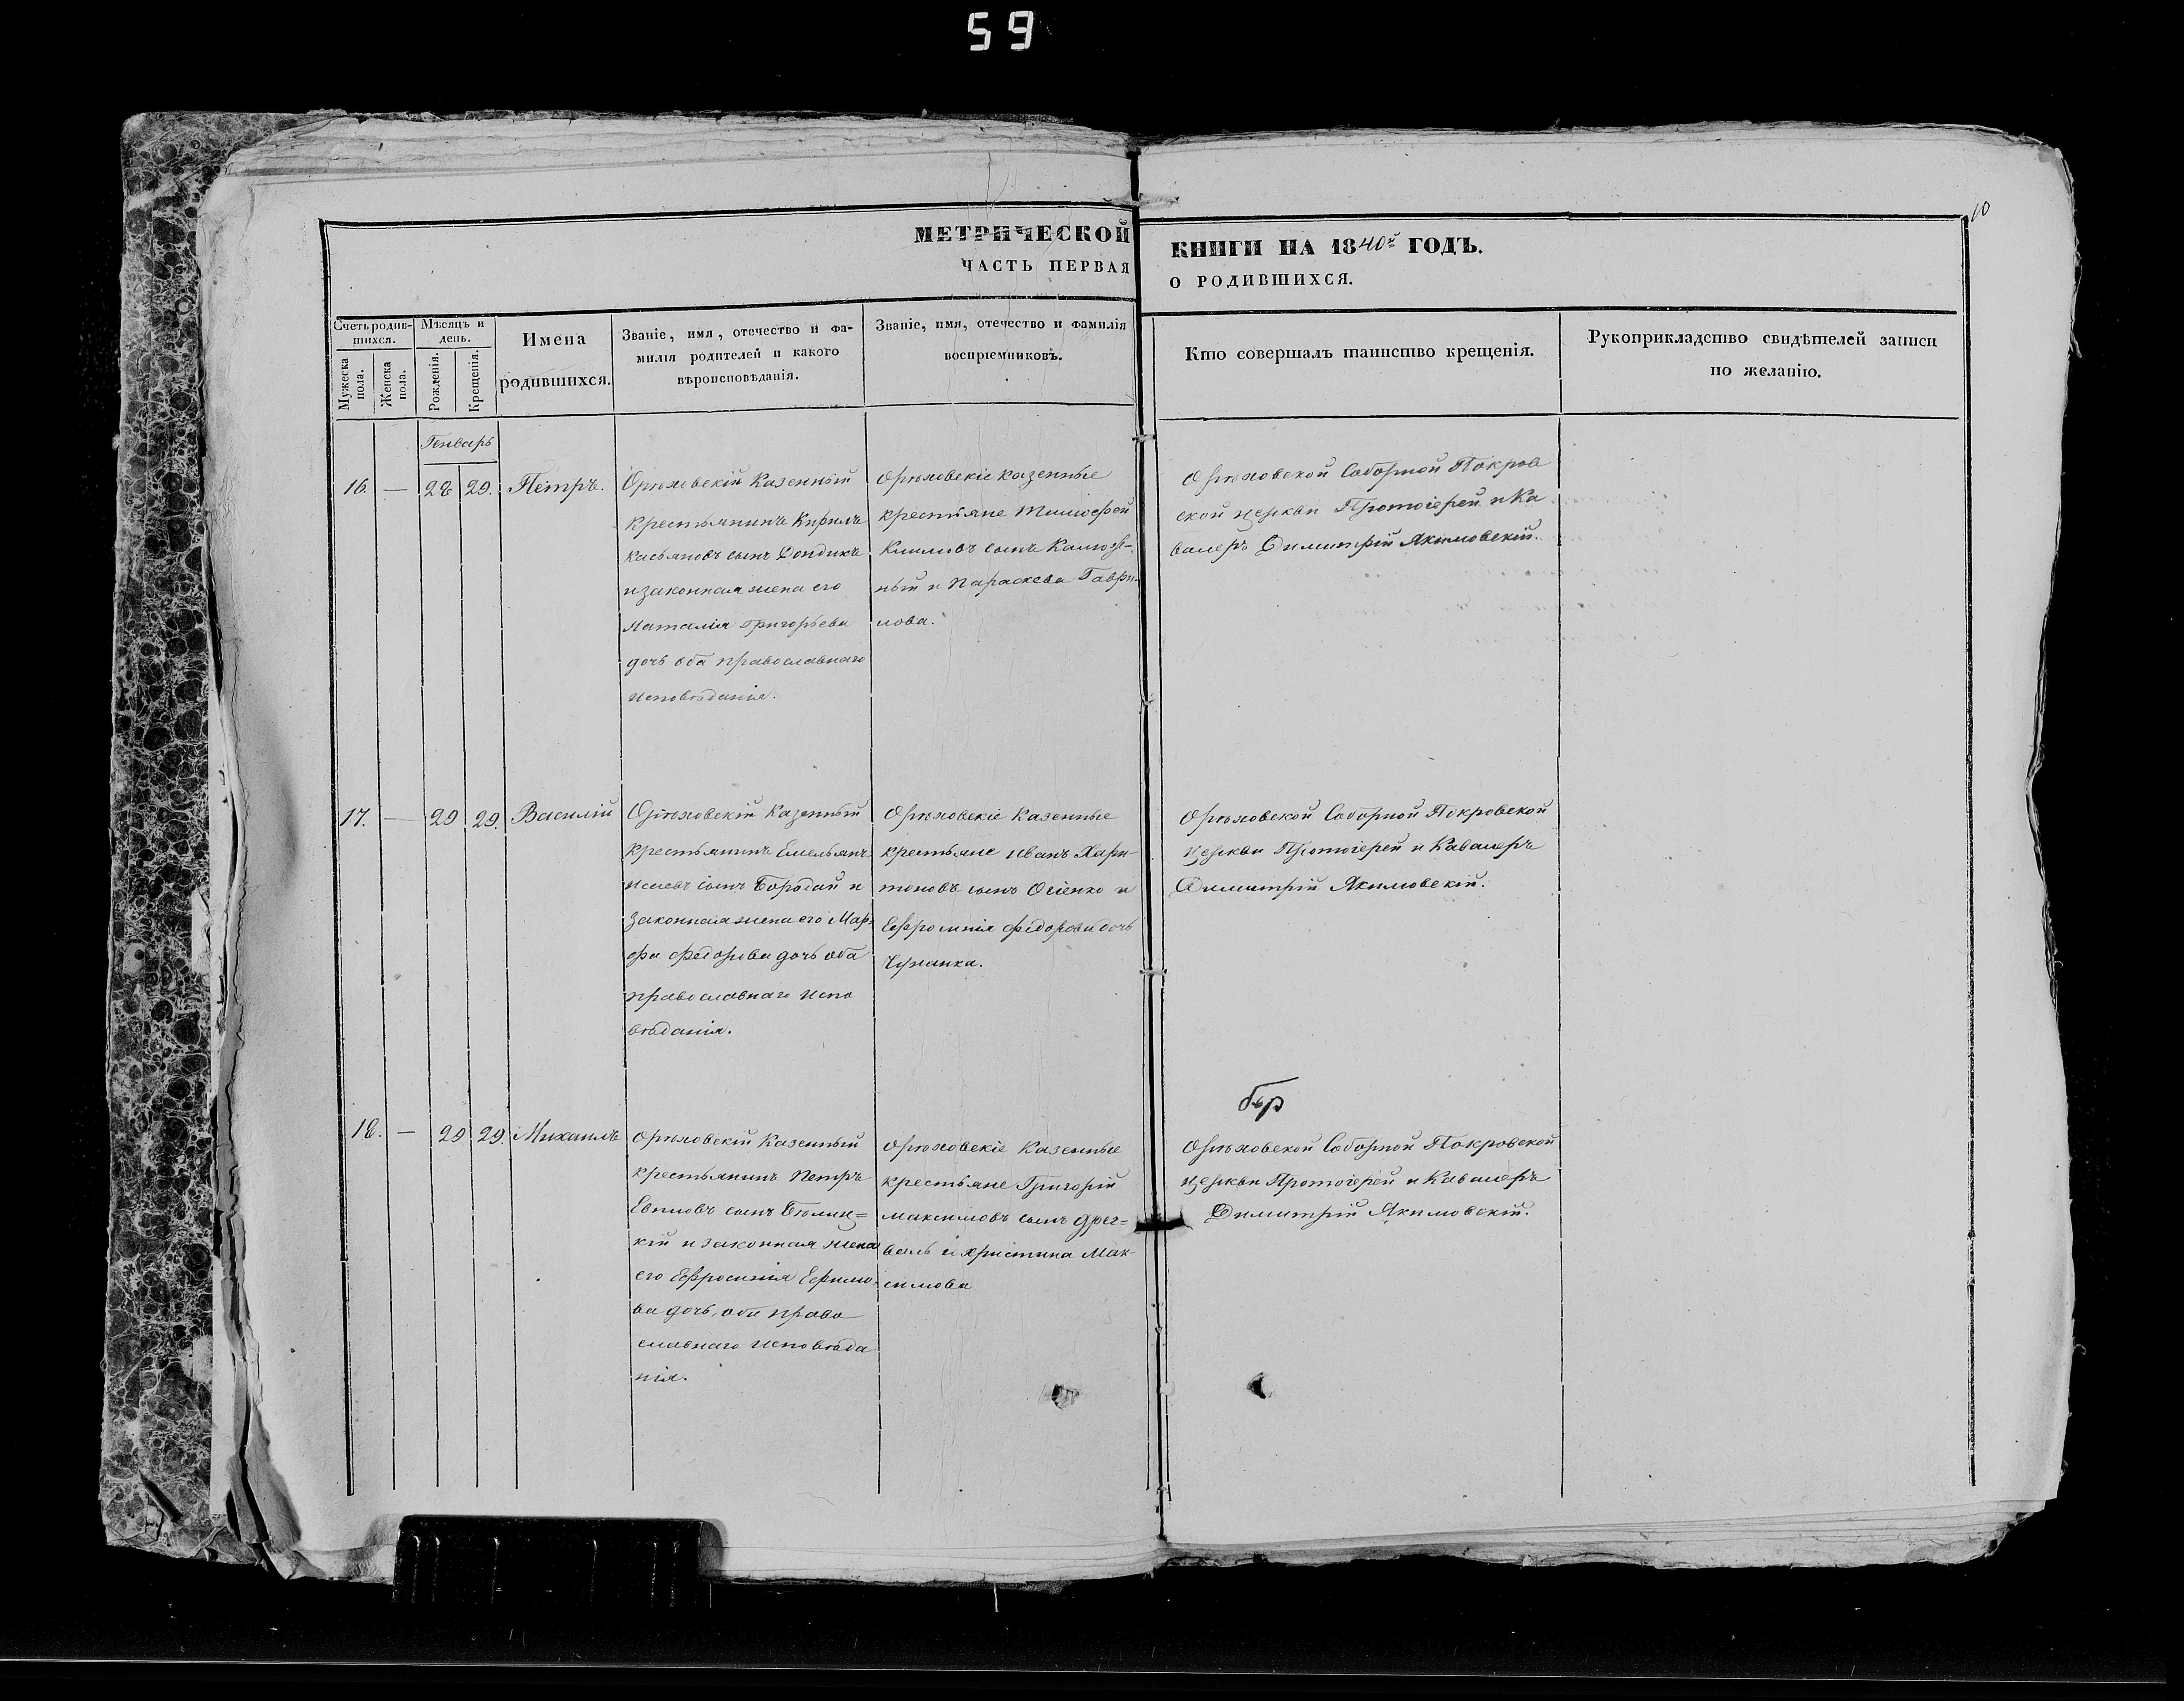 59
10
МЕТРИЧЕСКОЙ КНИГИ НА 1840й ГОДЪ.
ЧАСТЬ ПЕРВАЯ О РОДИВШИХСЯ.
Счетъ родив-
шихся.
Мужеска
пола.
Женска
пола.
Мѣсяцъ и
день.
Рожденія.
Крещенія.
Имена
родившихся.
Званіе, имя, отечество и фа-
милія родителей и какого
вѣроисповѣданія.
Званіе, имя, отечество и фамилія
воспріемниковъ.
Кто совершалъ таинство крещенія.
Рукоприкладство свидѣтелей записи
по желанію.
Генварь
16. — 28 29. Петръ.
Орѣховскій Казенный
крестьянинъ Кирилъ
Касьяновъ сынъ Дондикъ
и законная жена его
Наталія Григорьева
дочь оба православнаго
исповѣданія.
Орѣховскіе казенные
крестьяне Тимофей
сынъ
и Параскева Гаври-
лова.
Орѣховской Соборной Покров
ской церкви Протоіерей и Ка
валеръ Димитрій Якимовскій.
17. — 29 29. Василій
Орѣховскій Казенный
крестьянинъ Емельянъ
сынъ Бородай и
законная жена его Мар-
фа Федорова дочь оба
православнаго испо
вѣданія.
Орѣховскіе Казенные
крестьяне Иванъ Хари-
тоновъ сынъ Огіенко и
Ефросинія Федорова дочь
Орѣховской Соборной Покровской
церкви Протоіерей и Кавалеръ
Димитрій Якимовскій.
18. — 29 29. Михаилъ
Орѣховскій Казенный
крестьянинъ Петръ
сынъ Бѣлиц=
кій и законная жена
его Ефросинія Ефимо-
ва дочь, оба право
славнаго исповѣда
нія.
Орѣховскіе Казенные
крестьяне Григорій
Максимовъ сынъ Дрег=
валь и Христина Мак-
симова
Орѣховской Соборной Покровской
церкви Протоіерей и Кавалеръ
Димитрій Якимовскій.